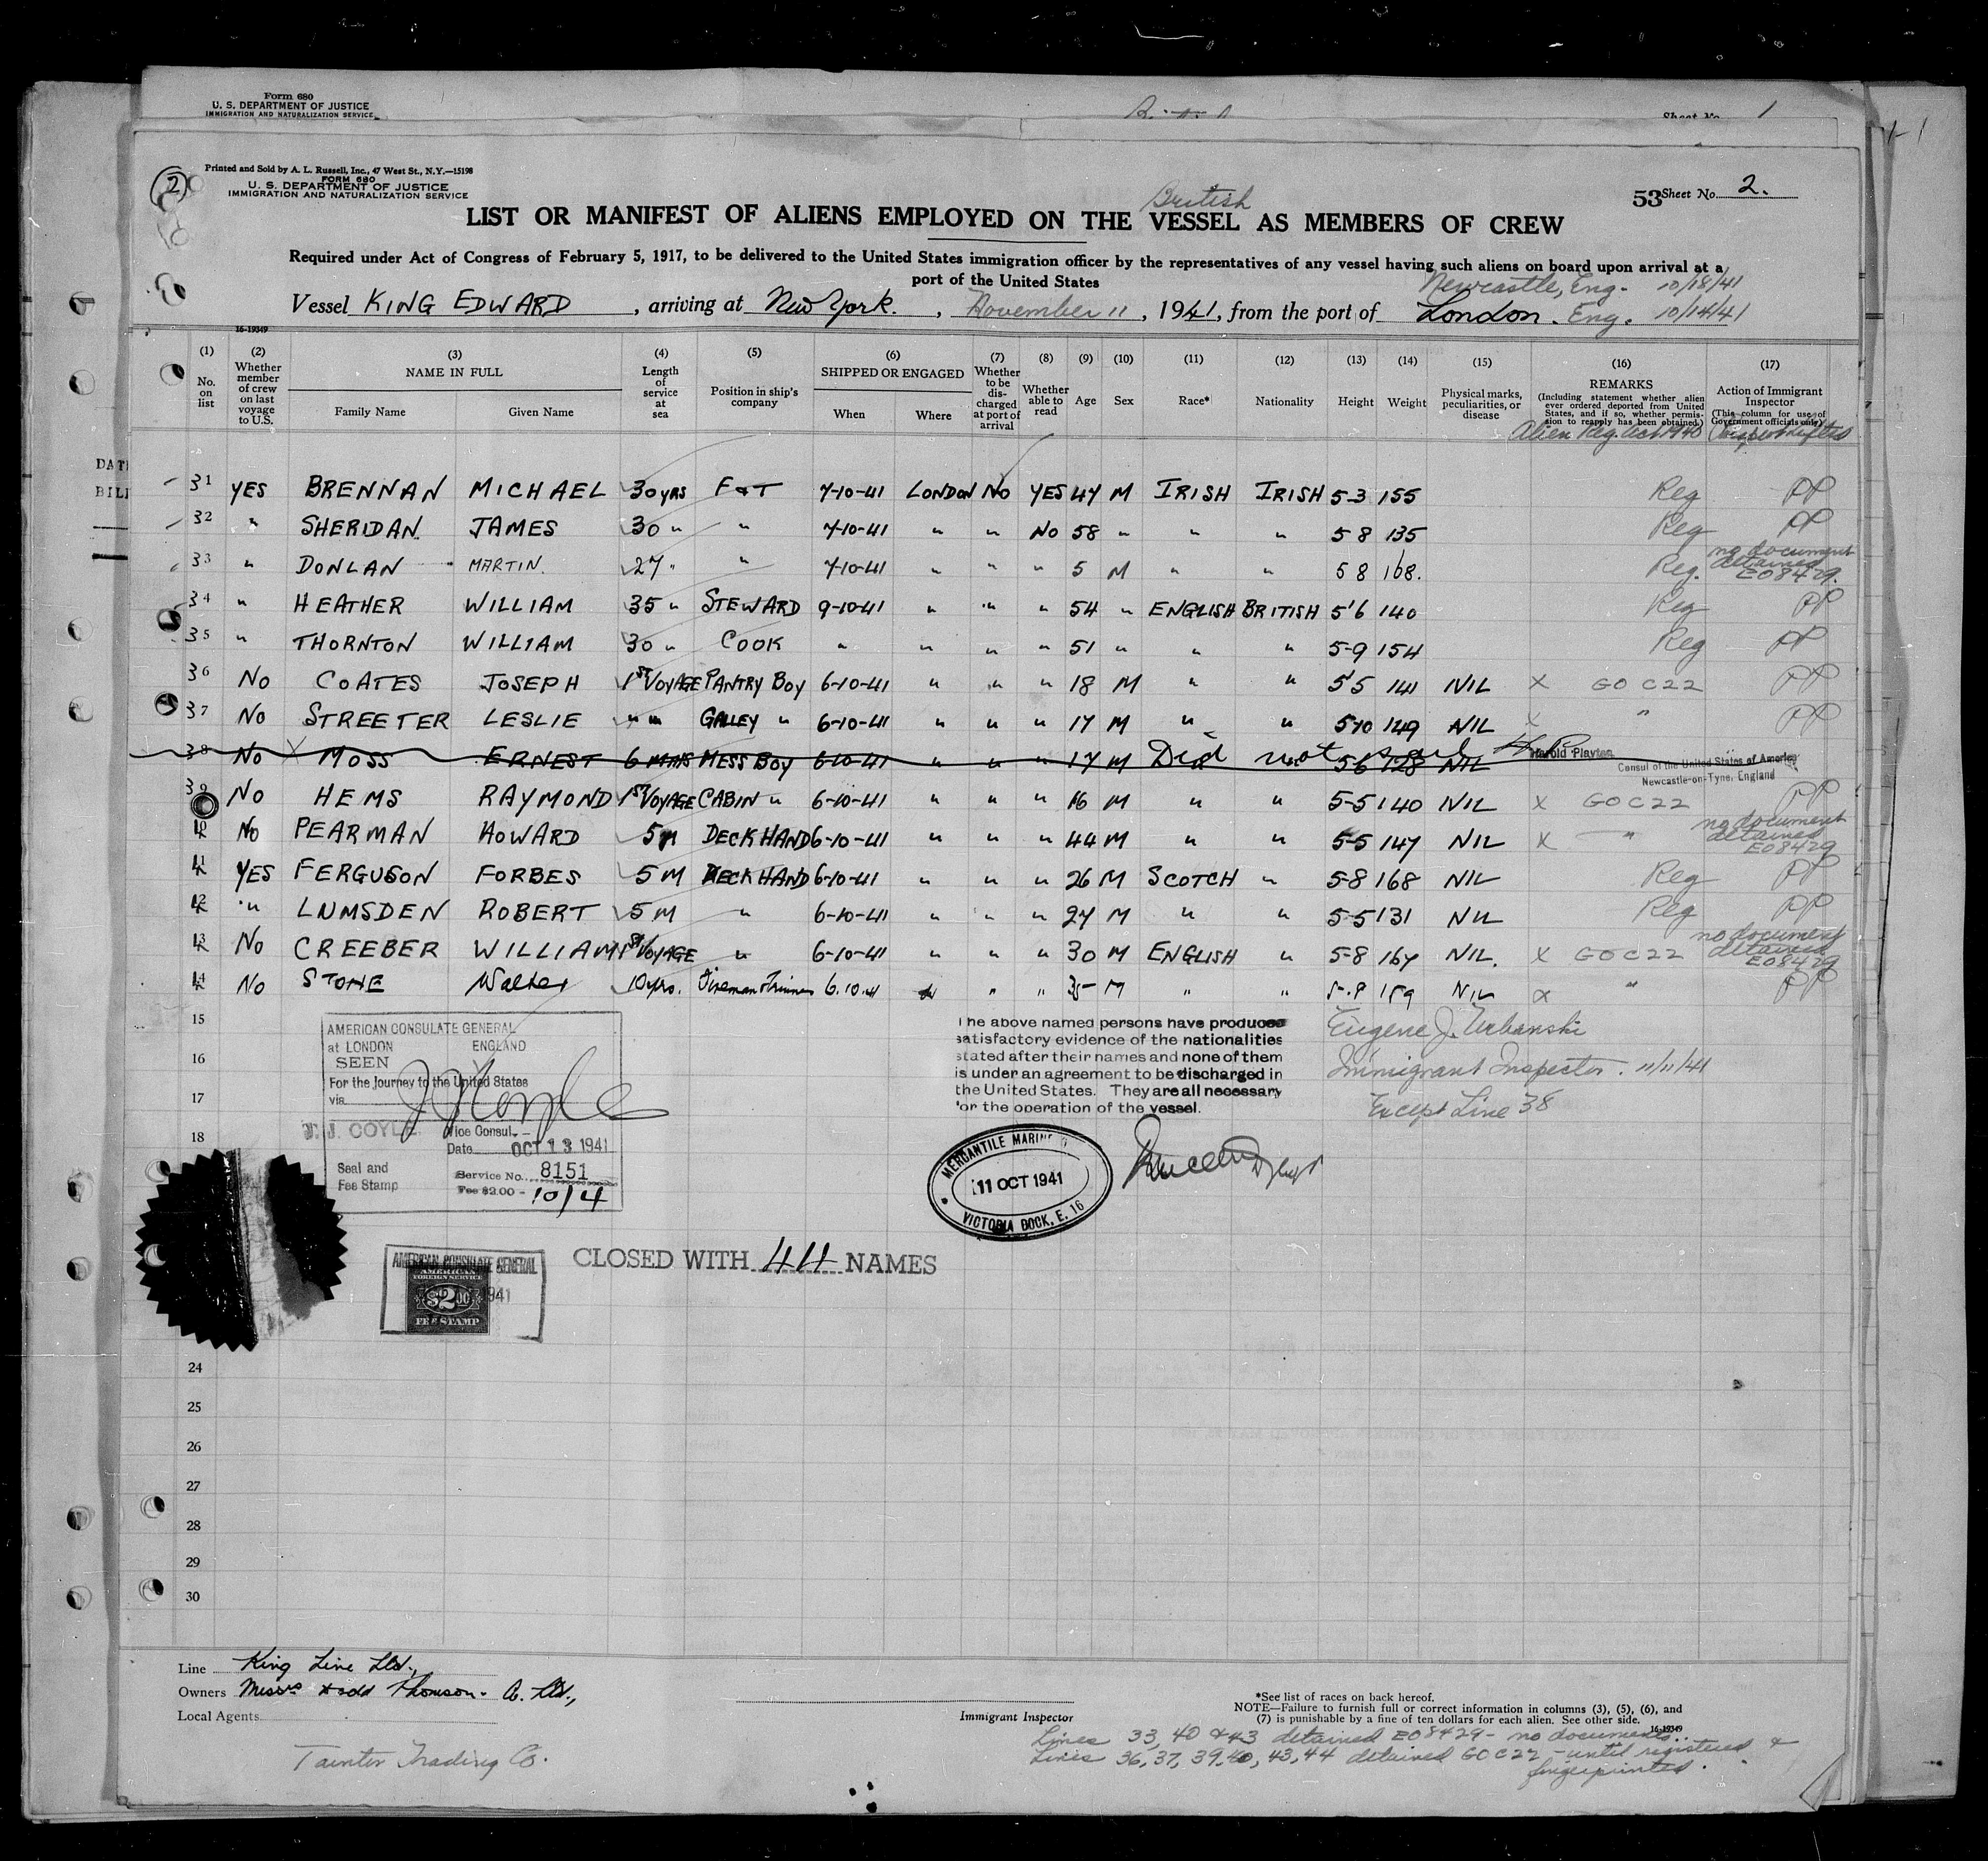 Form 680
U. S. DEPARTMENT OF JUSTICE
IMMIGRATION AND NATURALIZATION SERVICE
Sheet No. 1
DAT
BILL
2
Printed and Sold by A. L. Russell, Inc., 47 West St., N.Y.—15198
FORM 680
U. S. DEPARTMENT OF JUSTICE
IMMIGRATION AND NATURALIZATION SERVICE
53 Sheet No. 2.
British
LIST OR MANIFEST OF ALIENS EMPLOYED ON THE VESSEL AS MEMBERS OF CREW
Required under Act of Congress of February 5, 1917, to be delivered to the United States immigration officer by the representatives of any vessel having such aliens on board upon arrival at a
port of the United States
Newcastle, Eng. 10/18/41
Vessel KING EDWARD, arriving at New York., November 11, 1941, from the port of London. Eng. 10/14/41
16-19349
(1) No. on list
(2) Whether member of crew on last voyage to U.S.
(3) NAME IN FULL Family Name Given Name
(4) Length of service at sea
(5) Position in ship's company
(6) SHIPPED OR ENGAGED When Where
(7) Whether to be discharged at port of arrival
(8) Whether able to read
(9) Age
(10) Sex
(11) Race*
(12) Nationality
(13) Height
(14) Weight
(15) Physical marks, peculiarities, or disease
(16) REMARKS (Including statement whether alien ever ordered deported from United States, and if so, whether permission to reapply has been obtained.)
Alien Reg. Act 1940
(17) Action of Immigrant Inspector (This column for use of Government officials only)
31 YES BRENNAN MICHAEL 30 YRS F & T 7-10-41 LONDON NO YES 47 M IRISH IRISH 5-3 155 Reg PP
32 " SHERIDAN JAMES 30 " " 7-10-41 " " NO 58 " " " 5 8 135 Reg PP
33 " DONLAN MARTIN. 27 " " 7-10-41 " " " 5 M " " 5 8 168. Reg. no document detained EO8429.
34 " HEATHER WILLIAM 35 " STEWARD 9-10-41 " " " 54 " ENGLISH BRITISH 5'6 140 Reg PP
35 " THORNTON WILLIAM 30 " COOK " " " " 51 " " " 5-9 154 Reg PP
36 NO COATES JOSEPH 1ST VOYAGE PANTRY BOY 6-10-41 " " " 18 M " " 5'5 141 NIL X GO C22 PP
37 NO STREETER LESLIE " " GALLEY " 6-10-41 " " " 17 M " " 5-10 149 NIL X " PP
38 NO X MOSS ERNEST 6 MTHS MESS BOY 6-10-41 " " " 17 M Did not sail 5-6 128 NIL
Harold Playter
Consul of the United States of America
Newcastle-on-Tyne, England
39 NO HEMS RAYMOND 1ST VOYAGE CABIN " 6-10-41 " " " 16 M " " 5-5 140 NIL X GO C22 PP
40 NO PEARMAN HOWARD 5 M DECK HAND 6-10-41 " " " 44 M " " 5-5 147 NIL X " no document detained EO8429
41 YES FERGUSON FORBES 5 M DECK HAND 6-10-41 " " " 26 M SCOTCH " 5-8 168 NIL Reg PP
42 " LUMSDEN ROBERT 5 M " 6-10-41 " " " 27 M " " 5-5 131 NIL Reg PP
43 NO CREEBER WILLIAM 1ST VOYAGE " 6-10-41 " " " 30 M ENGLISH " 5-8 164 NIL. X GO C22 no document detained EO8429
44 NO STONE Walter 10 yrs. Fireman & Trimmer 6.10.41 " " " 35 M " " 5-8 159 NIL X " PP
15
16
17
18
AMERICAN CONSULATE GENERAL
at LONDON ENGLAND
SEEN
For the Journey to the United States
via
J. J. COYLE Vice Consul.
Date OCT 13 1941
Seal and Fee Stamp
Service No. 8151
Fee $2.00 - 10/4
The above named persons have produced
satisfactory evidence of the nationalities
stated after their names and none of them
is under an agreement to be discharged in
the United States. They are all necessary
for the operation of the vessel.
Eugene J. Urbanski
Immigrant Inspector. 11/11/41
Except Line 38
MERCANTILE MARINE O
11 OCT 1941
VICTORIA DOCK, E. 16
AMERICAN CONSULATE GENERAL
AMERICAN
FOREIGN SERVICE
$2.00
1941
FEE STAMP
CLOSED WITH 44 NAMES
24
25
26
27
28
29
30
Line King Line Ltd.,
Owners Messrs Dodd Thomson. Co. Ltd.,
Local Agents
Tainter Trading Co.
Immigrant Inspector
*See list of races on back hereof.
NOTE—Failure to furnish full or correct information in columns (3), (5), (6), and
(7) is punishable by a fine of ten dollars for each alien. See other side.
16-19349
Lines 33, 40 & 43 detained EO8429 - no documents &
Lines 36, 37, 39, 40, 43, 44 detained GO C22 - until registered
fingerprinted.